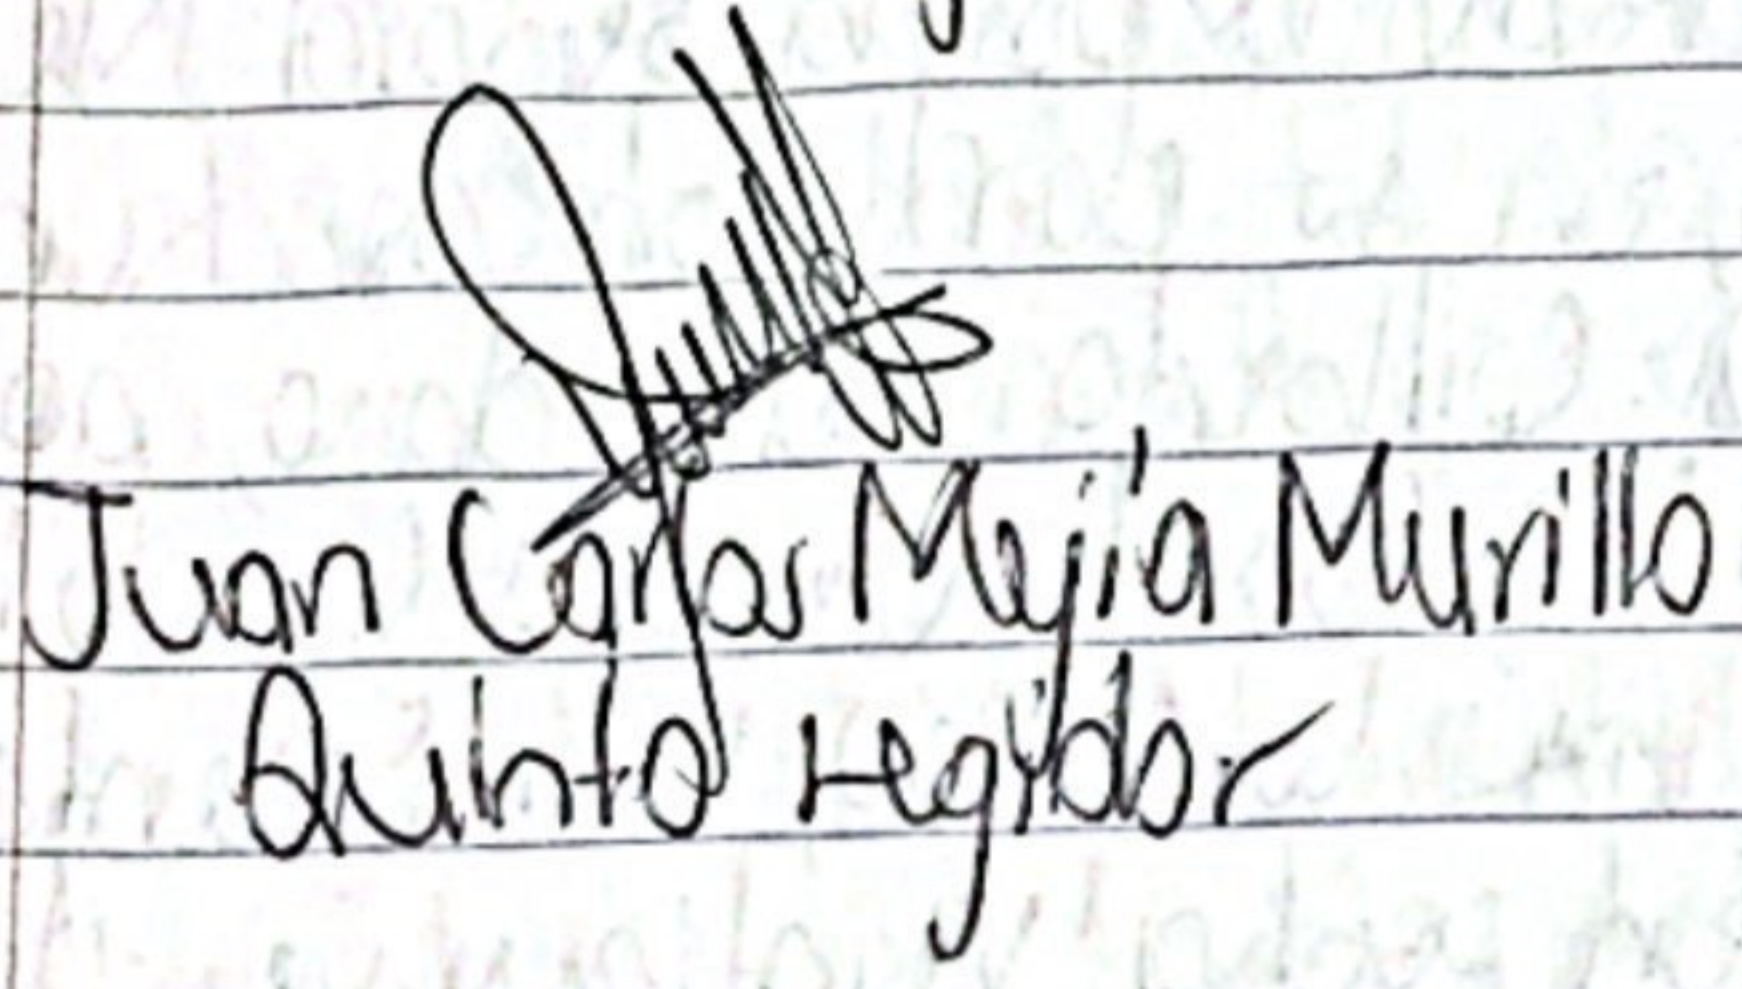 Juan Carlos Mejía Murillo
Quinto regidor